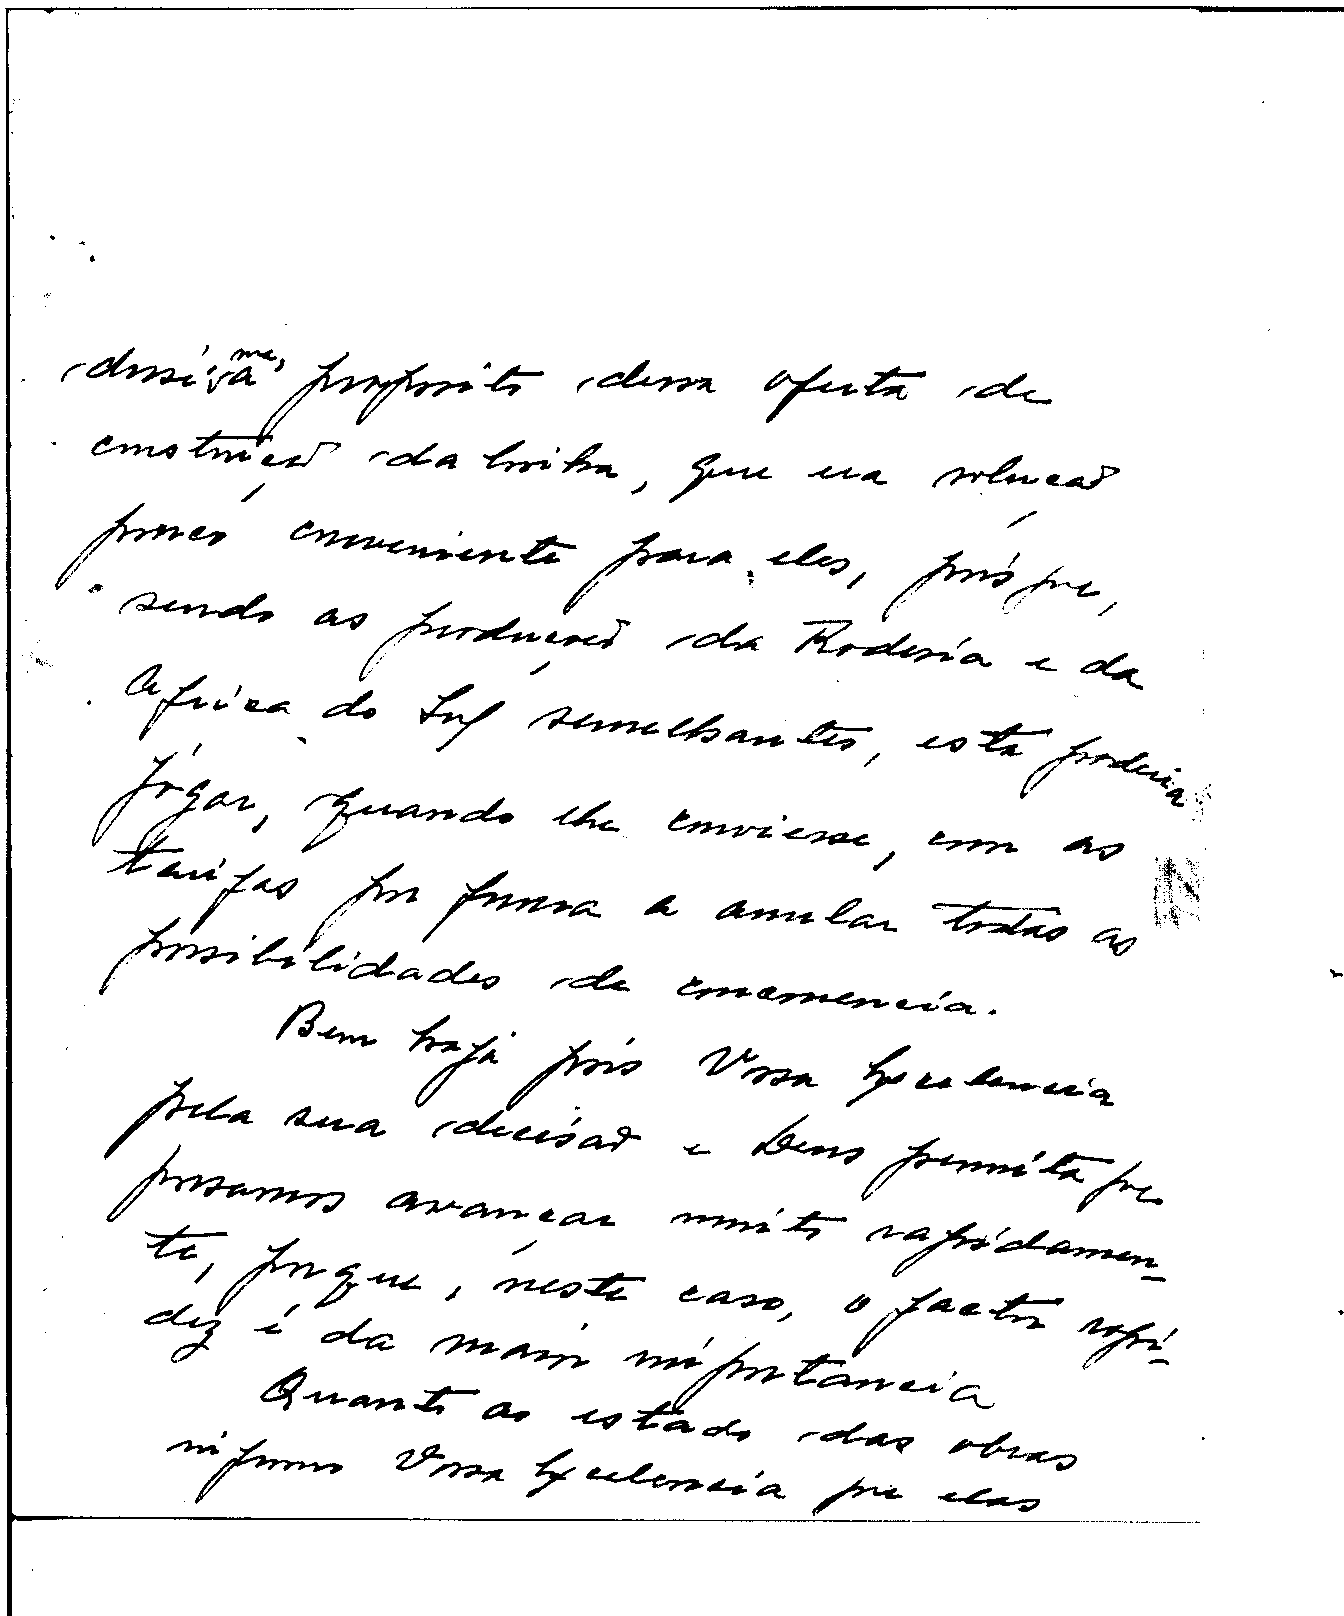 dissi-me, a proposito dessa oferta de
construção da linha, que era solução
pouco conveniente para eles, pois que,
sendo as produções da Rodesia e da
Africa do Sul semelhantes, esta poderia
jógar, quando lhe conviesse, com as
tarifas por forma a anular todas as
possibilidades de concorrencia.
Bem haja pois Vossa Excelencia
pela sua decisão e Deus permita que
possamos avançar muito rapidamen-
te, porque, neste caso, o factor rapi-
dez é da maior importancia
Quanto ao estado das obras
informo Vossa Excelencia que elas